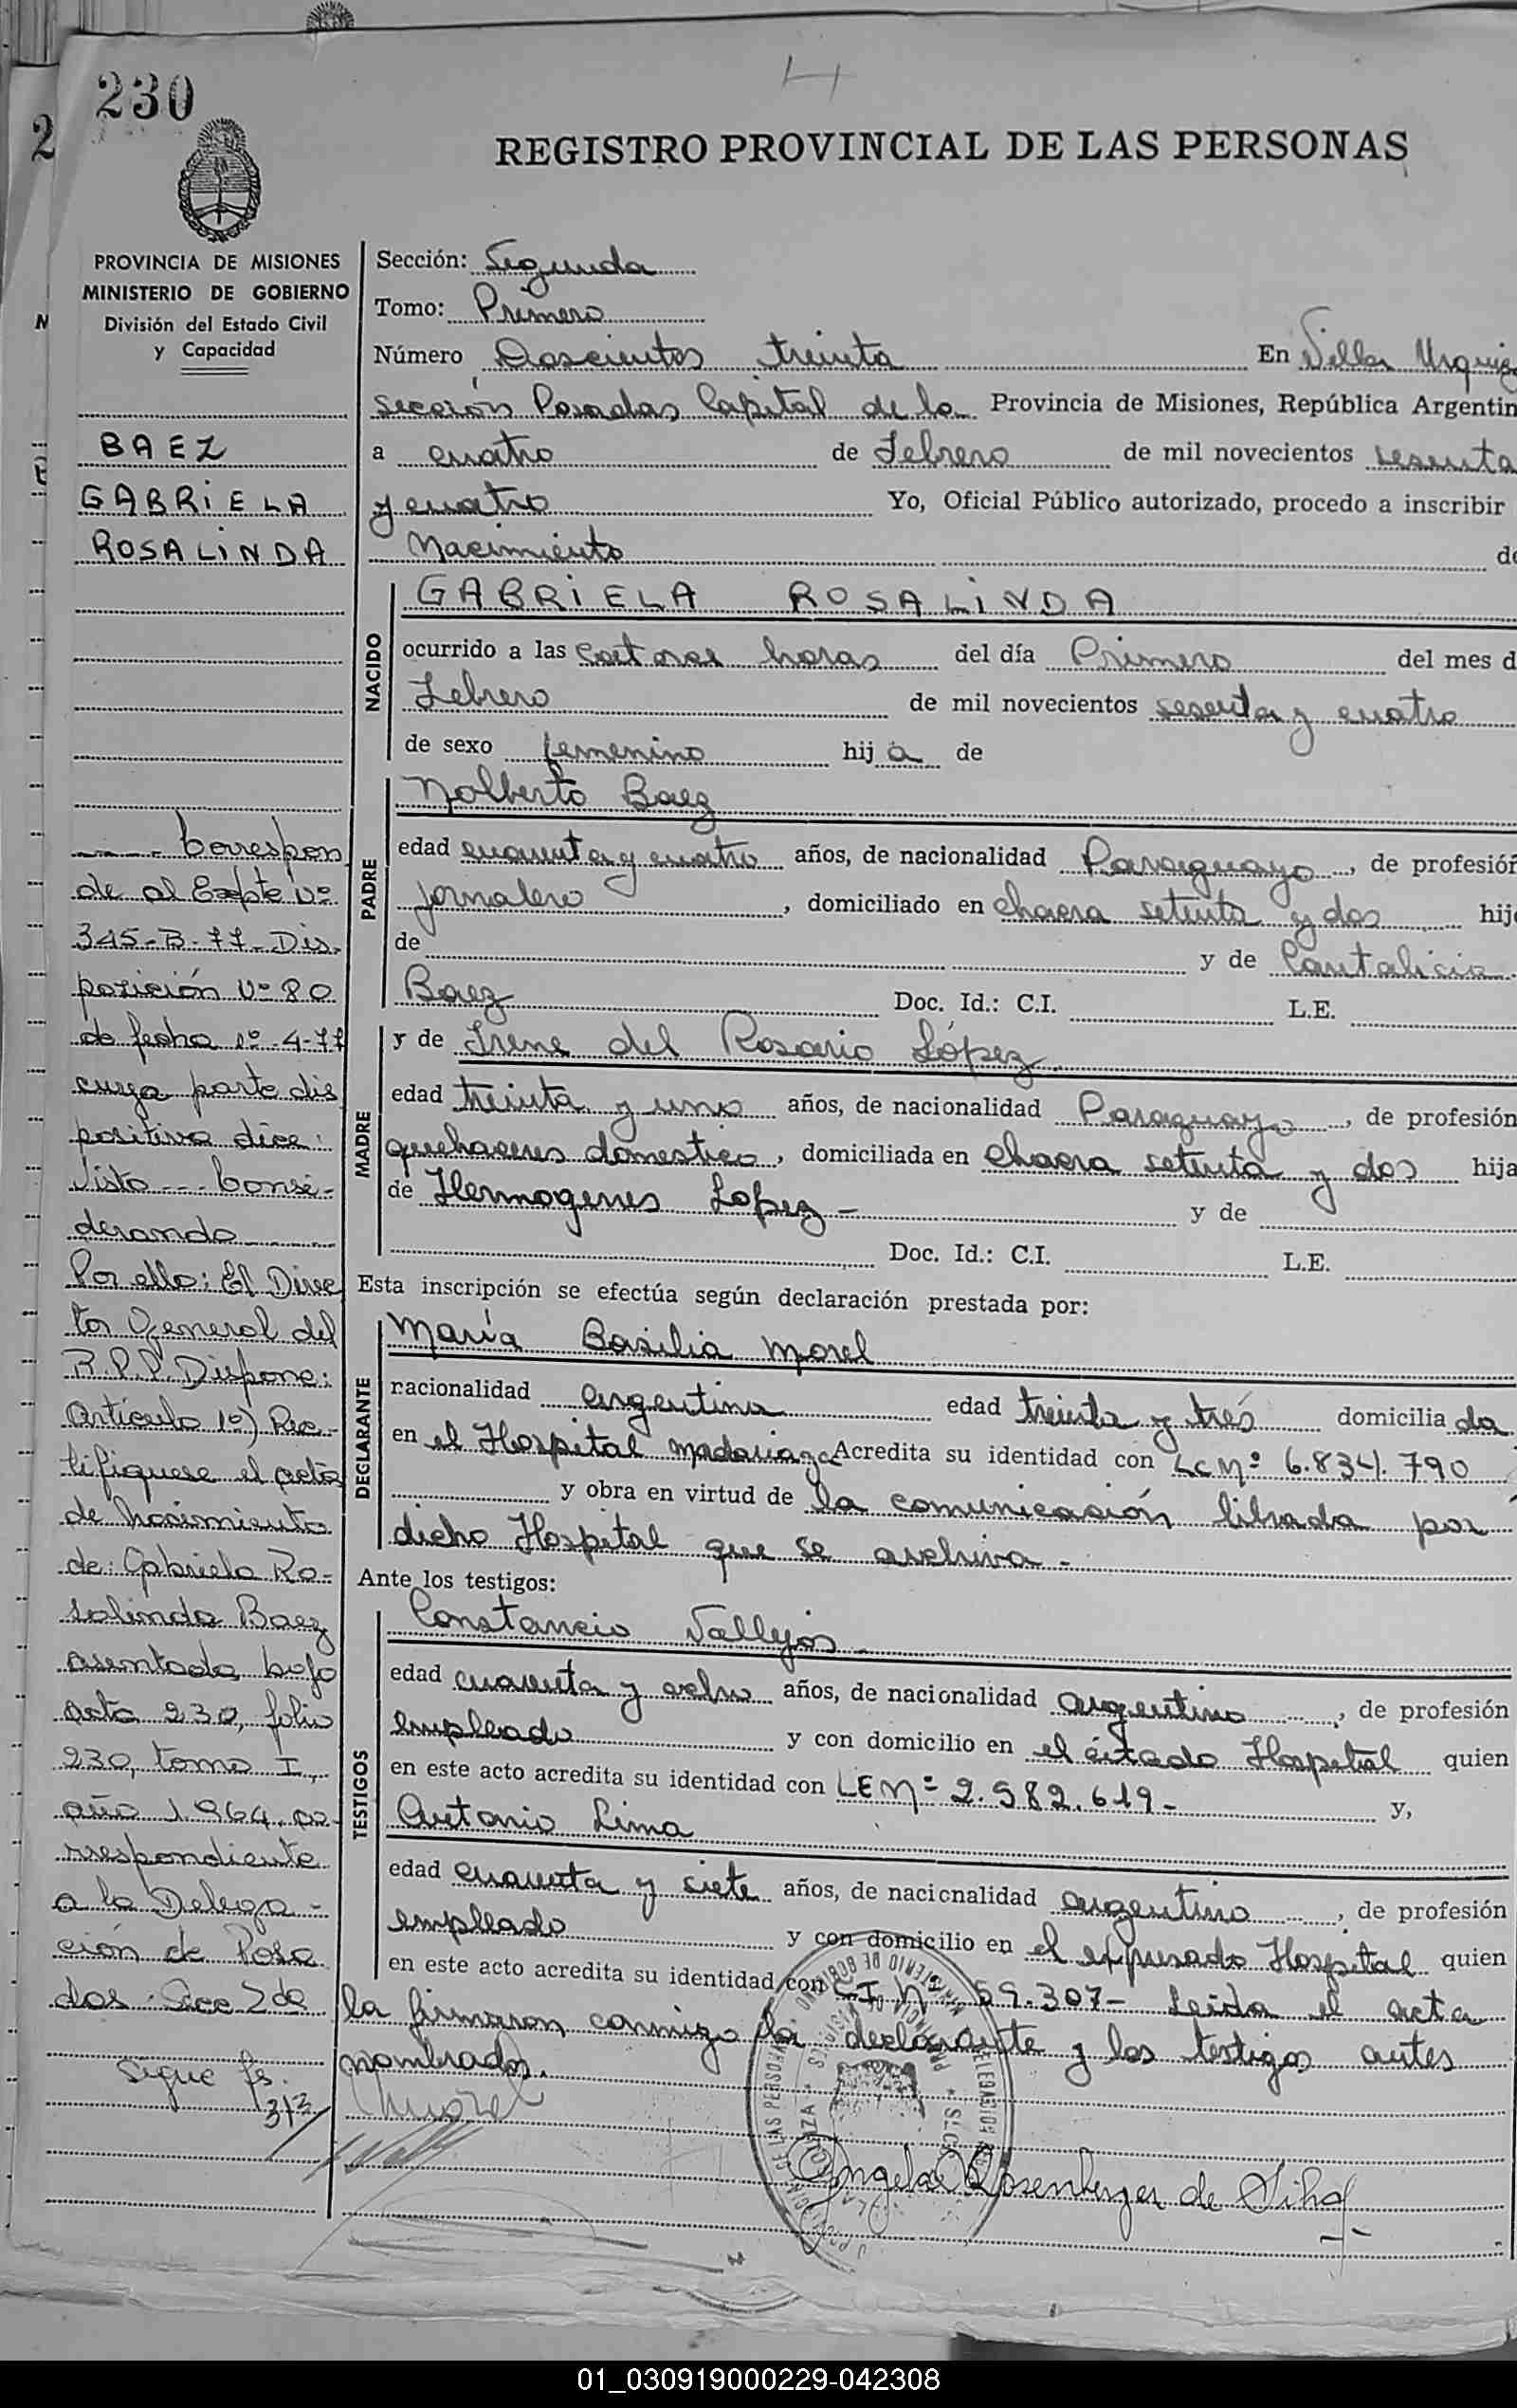 230
4
2
REGISTRO PROVINCIAL DE LAS PERSONAS
PROVINCIA DE MISIONES
MINISTERIO DE GOBIERNO
División del Estado Civil
y Capacidad
BAEZ
GABRIELA
ROSALINDA
Correspon
de al Expte Nº
345-B-77- Dis-
posición Nº 80
de fecha 1º-4-77
cuya parte dis
positiva dice:
Visto --- Consi-
derando
Por ello: El Direc
tor General del
R.P.P. Dispone:
Artículo 1º) Rec-
tifiquese el acta
de Nacimiento
de: Gabriela Ro-
salinda Baez
asentada bajo
acta 230, folio
230, tomo I,
año 1.964, co-
rrespondiente
a la Delega-
ción de Posa
das Secc 2da
Sigue fs.
313
Sección: Segunda
Tomo: Primero
Número Doscientos treinta En Villa Urquiz
sección Posadas Capital de la Provincia de Misiones, República Argentin
a cuatro de Febrero de mil novecientos sesenta
y cuatro Yo, Oficial Público autorizado, procedo a inscribir
Nacimiento d
NACIDO
GABRIELA ROSALINDA
ocurrido a las catorce horas del día Primero del mes d
Febrero de mil novecientos sesenta y cuatro
de sexo femenino hij a de
PADRE
Nolberto Baez
edad cuarenta y cuatro años, de nacionalidad Paraguayo, de profesión
jornalero, domiciliado en chacra setenta y dos hij
de y de Cantalicia
Baez Doc. Id.: C.I. L.E.
MADRE
y de Irene del Rosario López
edad treinta y uno años, de nacionalidad Paraguayo, de profesión
quehaceres domestico, domiciliada en chacra setenta y dos hija
de Hermogenes Lopez - y de
Doc. Id.: C.I. L.E.
Esta inscripción se efectúa según declaración prestada por:
DECLARANTE
María Basilia Morel
nacionalidad argentina edad treinta y trés domicilia da
en el Hospital Madariaga Acredita su identidad con LC Nº 6.834.790
y obra en virtud de la comunicasión librada por
dicho Hospital que se archiva -
Ante los testigos:
TESTIGOS
Constancio Vallejos
edad cuarenta y ocho años, de nacionalidad argentino, de profesión
empleado y con domicilio en el citado Hospital quien
en este acto acredita su identidad con LE Nº 2.582.619- y,
Antonio Lima
edad cuarenta y siete años, de nacionalidad argentino, de profesión
empleado y con domicilio en el expresado Hospital quien
en este acto acredita su identidad con CI Nº 59.307- Leida el acta
la firmaron conmigo la declarante y los testigos antes
nombrados.
Morel
01_030919000229-042308